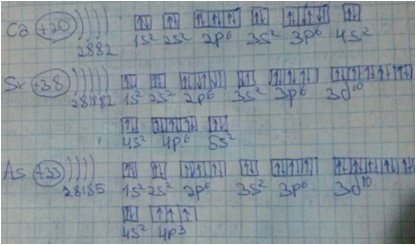 Ca +20 ) ) ) ) 2 8 8 2 ↑↓ ↑↓ ↑↓ ↑↓ ↑↓ ↑↓ ↑↓ ↑↓ ↑↓ ↑↓
1s² 2s² 2p⁶ 3s² 3p⁶ 4s²
Sr +38 ) ) ) ) ) 2 8 18 8 2 ↑↓ ↑↓ ↑↓ ↑↓ ↑↓ ↑↓ ↑↓ ↑↓ ↑↓ ↑↓ ↑↓ ↑↓ ↑↓ ↑↓
1s² 2s² 2p⁶ 3s² 3p⁶ 3d¹⁰
↑↓ ↑↓ ↑↓ ↑↓ ↑↓
4s² 4p⁶ 5s²
As +33 ) ) ) ) 2 8 18 5 ↑↓ ↑↓ ↑↓ ↑↓ ↑↓ ↑↓ ↑↓ ↑↓ ↑↓ ↑↓ ↑↓ ↑↓ ↑↓ ↑↓
1s² 2s² 2p⁶ 3s² 3p⁶ 3d¹⁰
↑↓ ↑ ↑ ↑
4s² 4p³